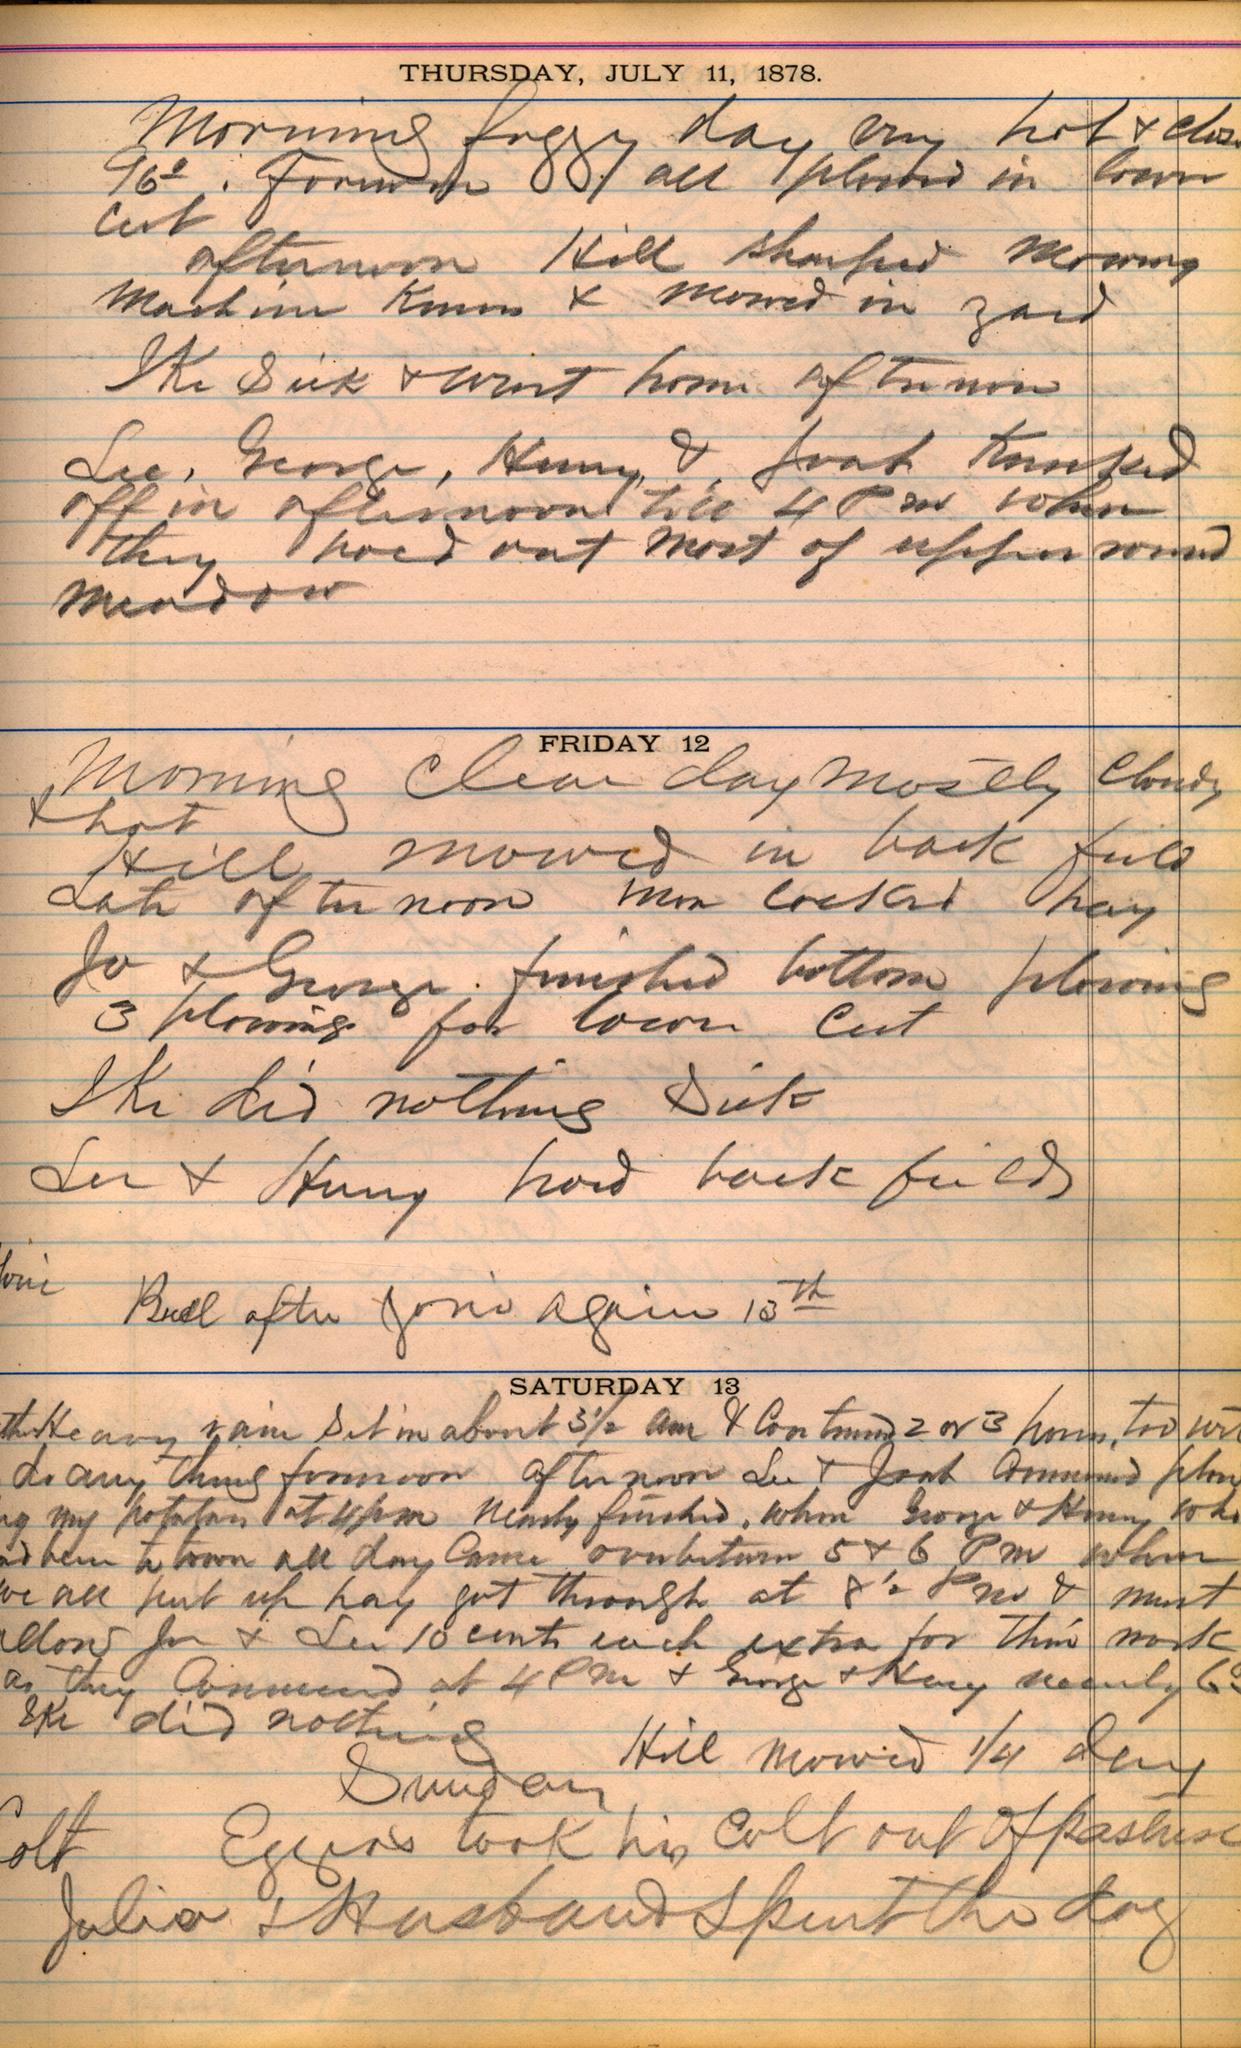 THURSDAY, JULY 11, 1878.
Morning foggy day very hot & close
96°. Forenoon all plowed in lower
cut
afternoon Hill sharped mowing
machine knives & mowed in yard
Ike Sick & went home afternoon
Lee, George, Henry, & Joab
off in afternoon till 4 P m when
they hoed out most of upper round
meadow
FRIDAY 12
Morning Clear day mostly Cloudy
& hot
Hill mowed in back field
Late afternoon men cocked hay
Jo & George. finished bottom plowing
3 plowings for lower Cut
Ike did nothing Sick
Lee & Henry hoed back field
Bull after again 13th
SATURDAY 13
Heavy rain Set in about 3 1/2 am & Continued 2 or 3 hours, too wet
do any thing forenoon afternoon Lee & Joab Commenced plow
my potatoes at 4 pm nearly finished, when George & Henry who
been to town all day Came over between 5 & 6 P m when
we all put up hay got through at 8 1/2 P m & must
allow Jo & Lee 10 cents each extra for this work
as they Commenced at 4 P m & George & Henry nearly 6
Ike did nothing
Hill mowed 1/4 day
Sunday
Colt took his Colt out of pasture
Julia & Husband Spent the day